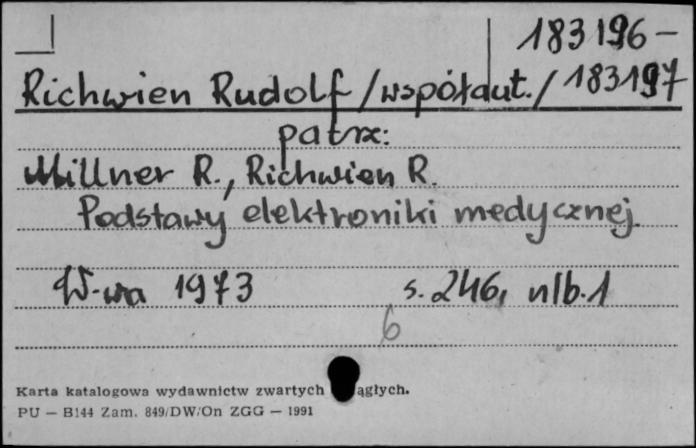 183196-
Richwien Rudolf /współaut./ 183197
patrz:
Millner R., Richwien R.
Podstawy elektroniki medycznej
W-wa 1973 s. 246, nlb.1
6
Karta katalogowa wydawnictw zwartych ągłych.
PU — B144 Zam. 849/DW/On ZGG — 1991